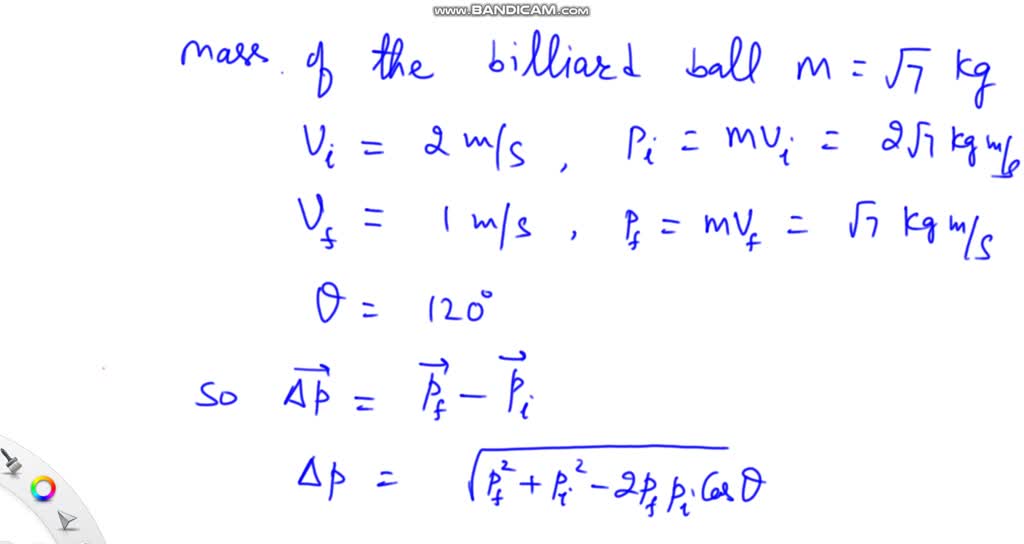 www.BANDICAM.com
mass of the billiard ball m = √7 kg
Vi = 2 m/s, Pi = mVi = 2√7 kg m/s
Vf = 1 m/s, Pf = mVf = √7 kg m/s
θ = 120°
So Δp⃗ = p⃗f − p⃗i
Δp = √(pf² + pi² − 2pf pi Cos θ)